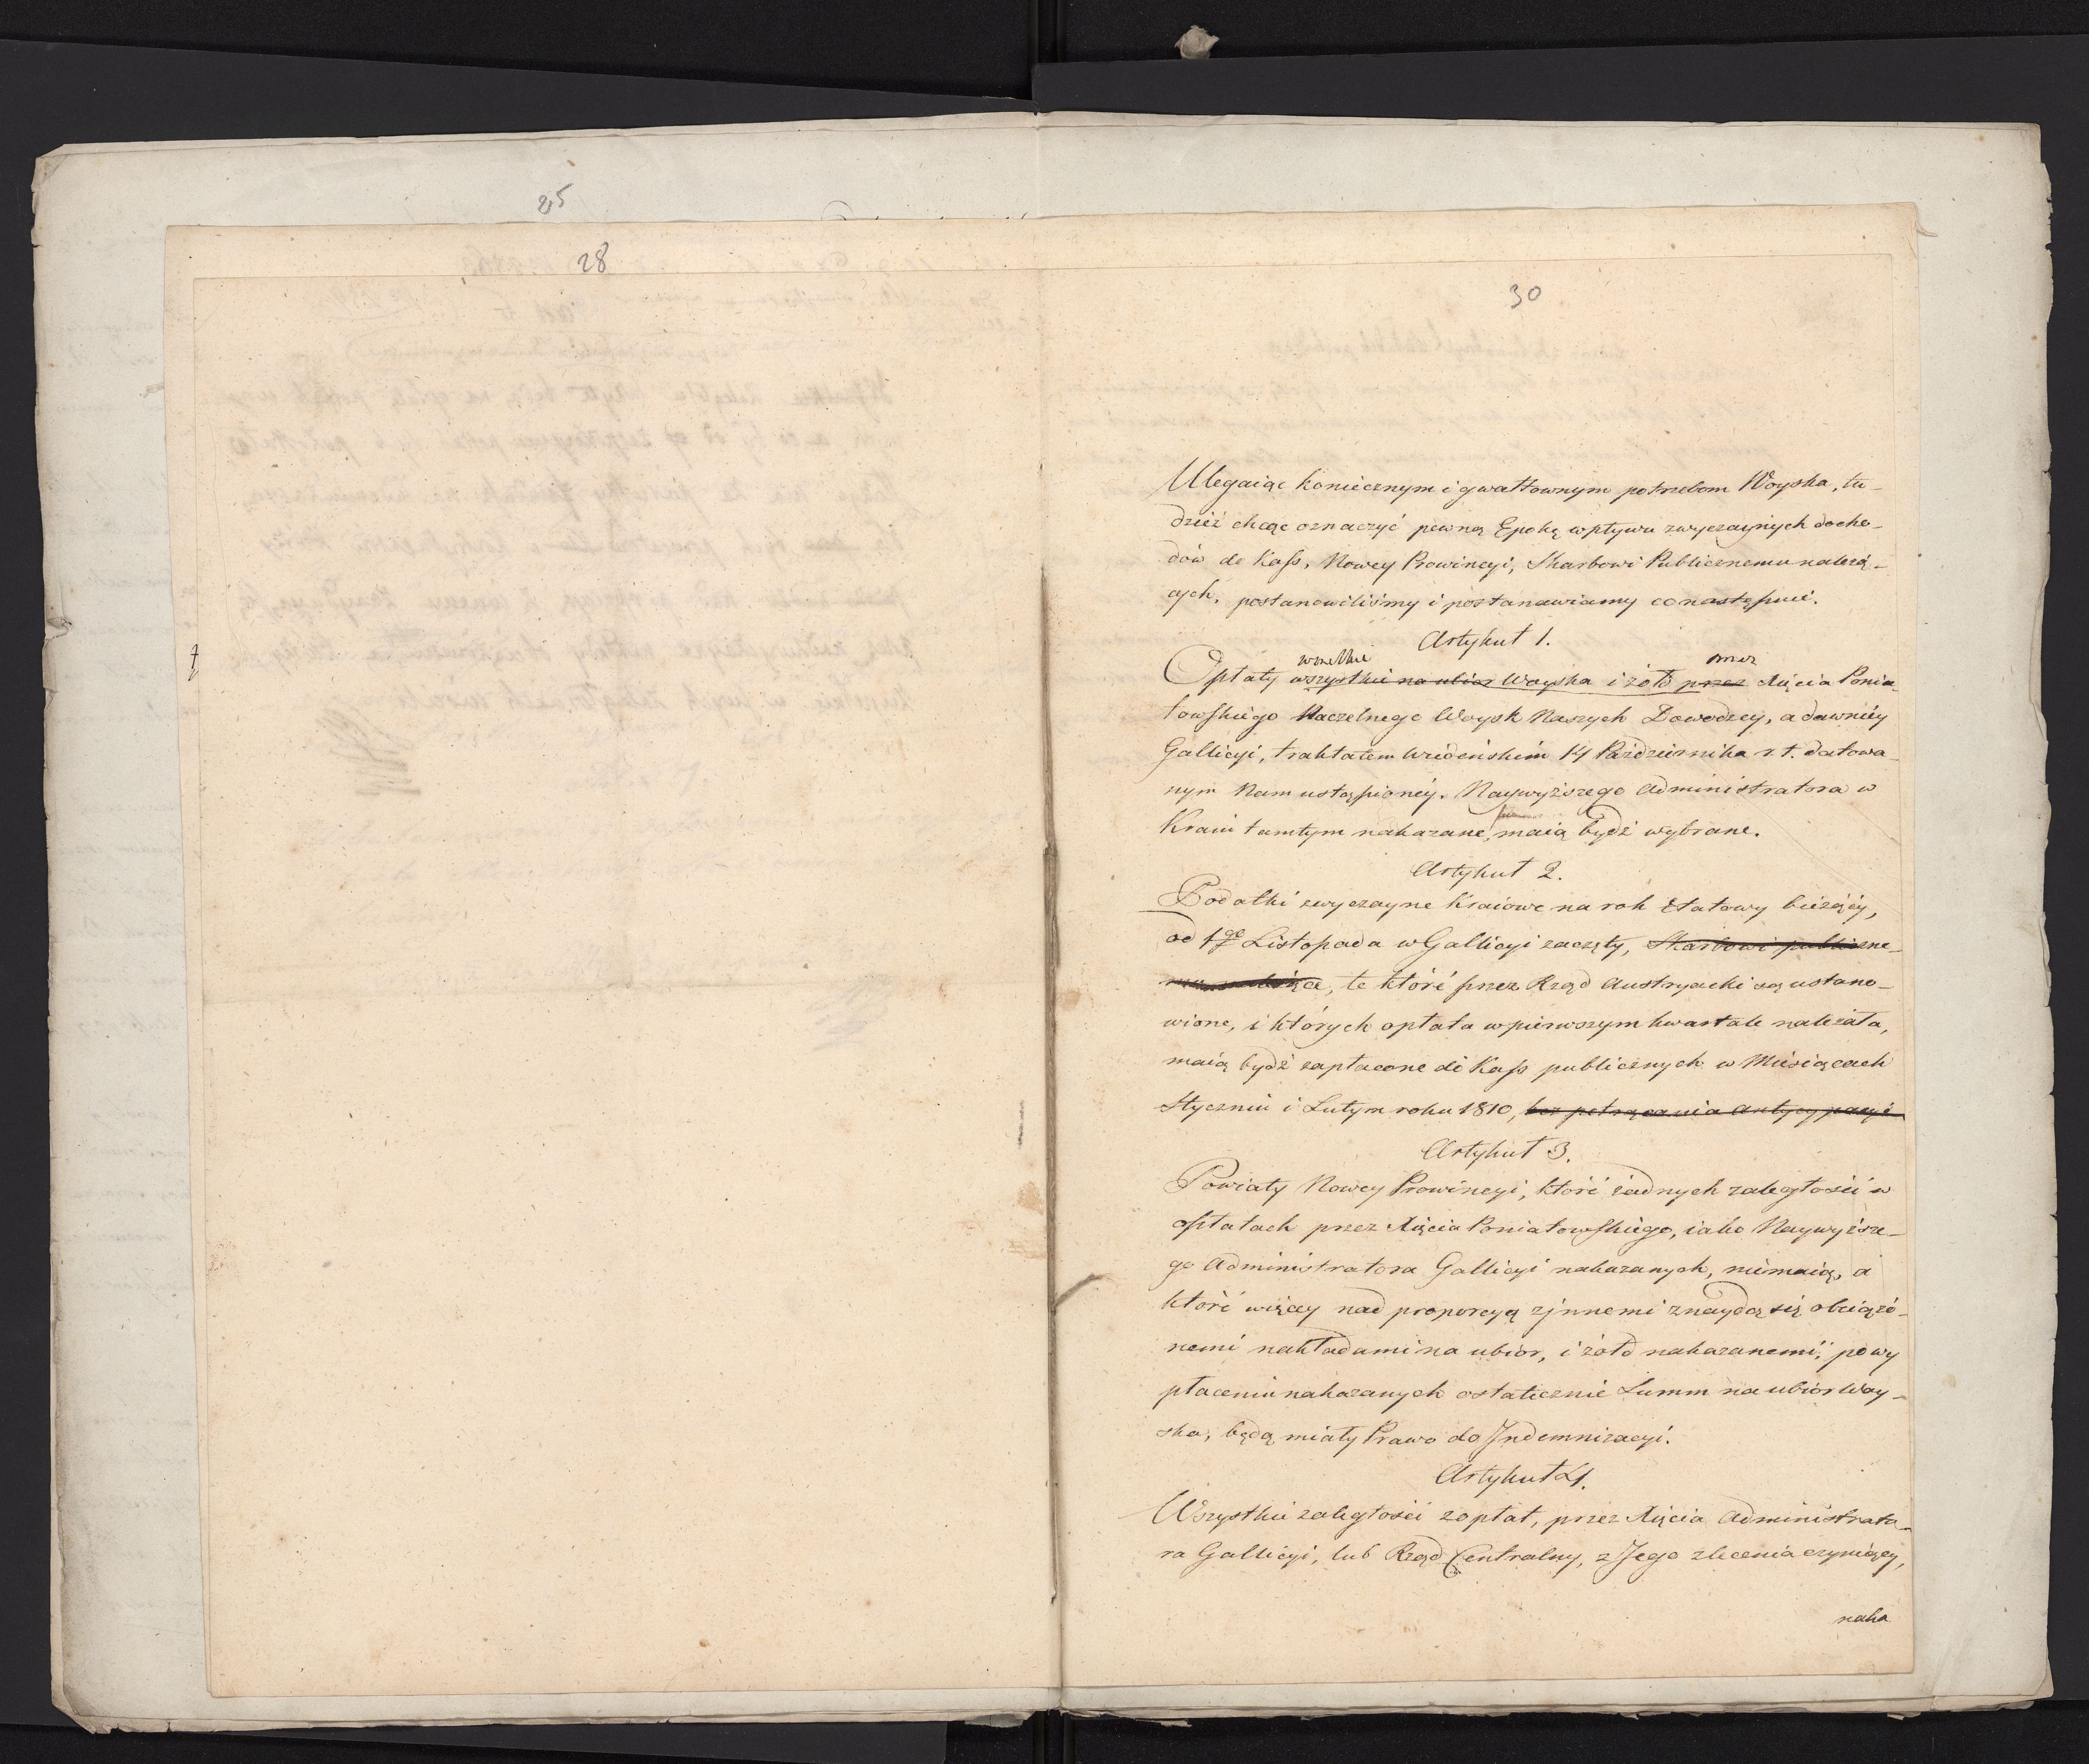 25
28
30
Ulegaiąc koniecznym i gwałtownym potrzebom Woyska, tu-
dzież chcąc oznaczyć pewną Epokę wpływu zwyczaynych docho-
dów do Kass, Nowey Prowincyi, Skarbowi Publicznemu należą-
cych, postanowiliśmy i postanawiamy co następuie.
Artykuł 1.
wszelkie przez
Opłaty wszystkie na ubior Woyska i żołd przez Xięcia Ponia-
towskiego Naczelnego Woysk Naszych Dowodzcy, a dawniey
Gallicyi, traktatem Wiedeńskim 14 Października r. t. datowa-
nym Nam ustąpioney. Naywyższego Administratora w
Kraiu tamtym nakazane, maią bydź wybrane.
Artykuł 2.
Podatki zwyczayne Kraiowe na rok Etatowy bieżący,
od 1go Listopada w Gallicyi zaczęty, Skarbowi publiczne-
mu należące, te które przez Rząd Austryacki są ustano-
wione, i których opłata w pierwszym kwartale należała,
maią bydź zapłacone do Kass publicznych w Miesiącach
Styczniu i Lutym roku 1810, bez potrącania Antycypacyi
Artykuł 3.
Powiaty Nowey Prowincyi, które żadnych zaległości w
opłatach przez Xięcia Poniatowskiego, iako Naywyższe-
go Administratora Gallicyi nakazanych, niemaią, a
które więcey nad proporcyą z jnnemi znaydą się obciążo-
nemi nakładami na ubior, i żołd nakazanemi; po wy
płaceniu nakazanych ostatecznie Summ na ubior Woy-
ska, będą miały Prawo do Jndemnizacyi.
Artykuł 4.
Wszystkie zaległości z opłat, przez Xięcia Administrato-
ra Gallicyi, lub Rząd Centralny, z Jego zlecenia czyniący,
naka